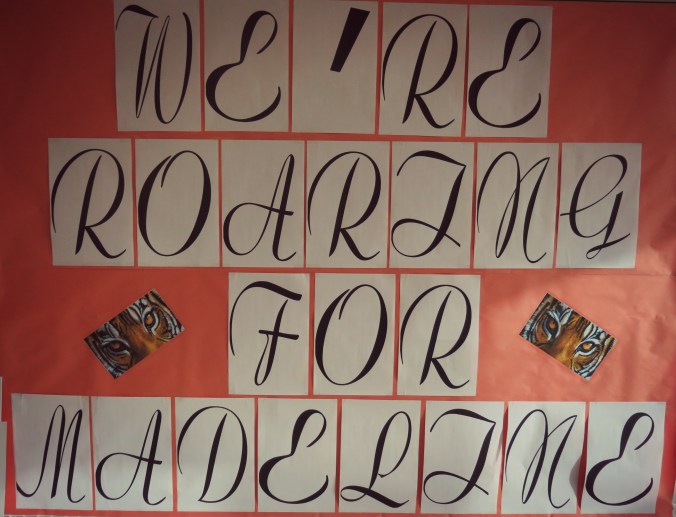 WE'RE
ROARING
FOR
MADELINE